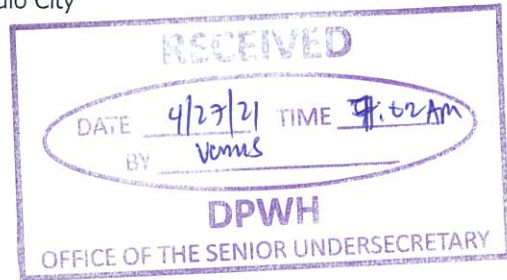 City
RECEIVED
DATE 4/27/21 TIME :02 AM
BY Venus
DPWH
OFFICE OF THE SENIOR UNDERSECRETARY